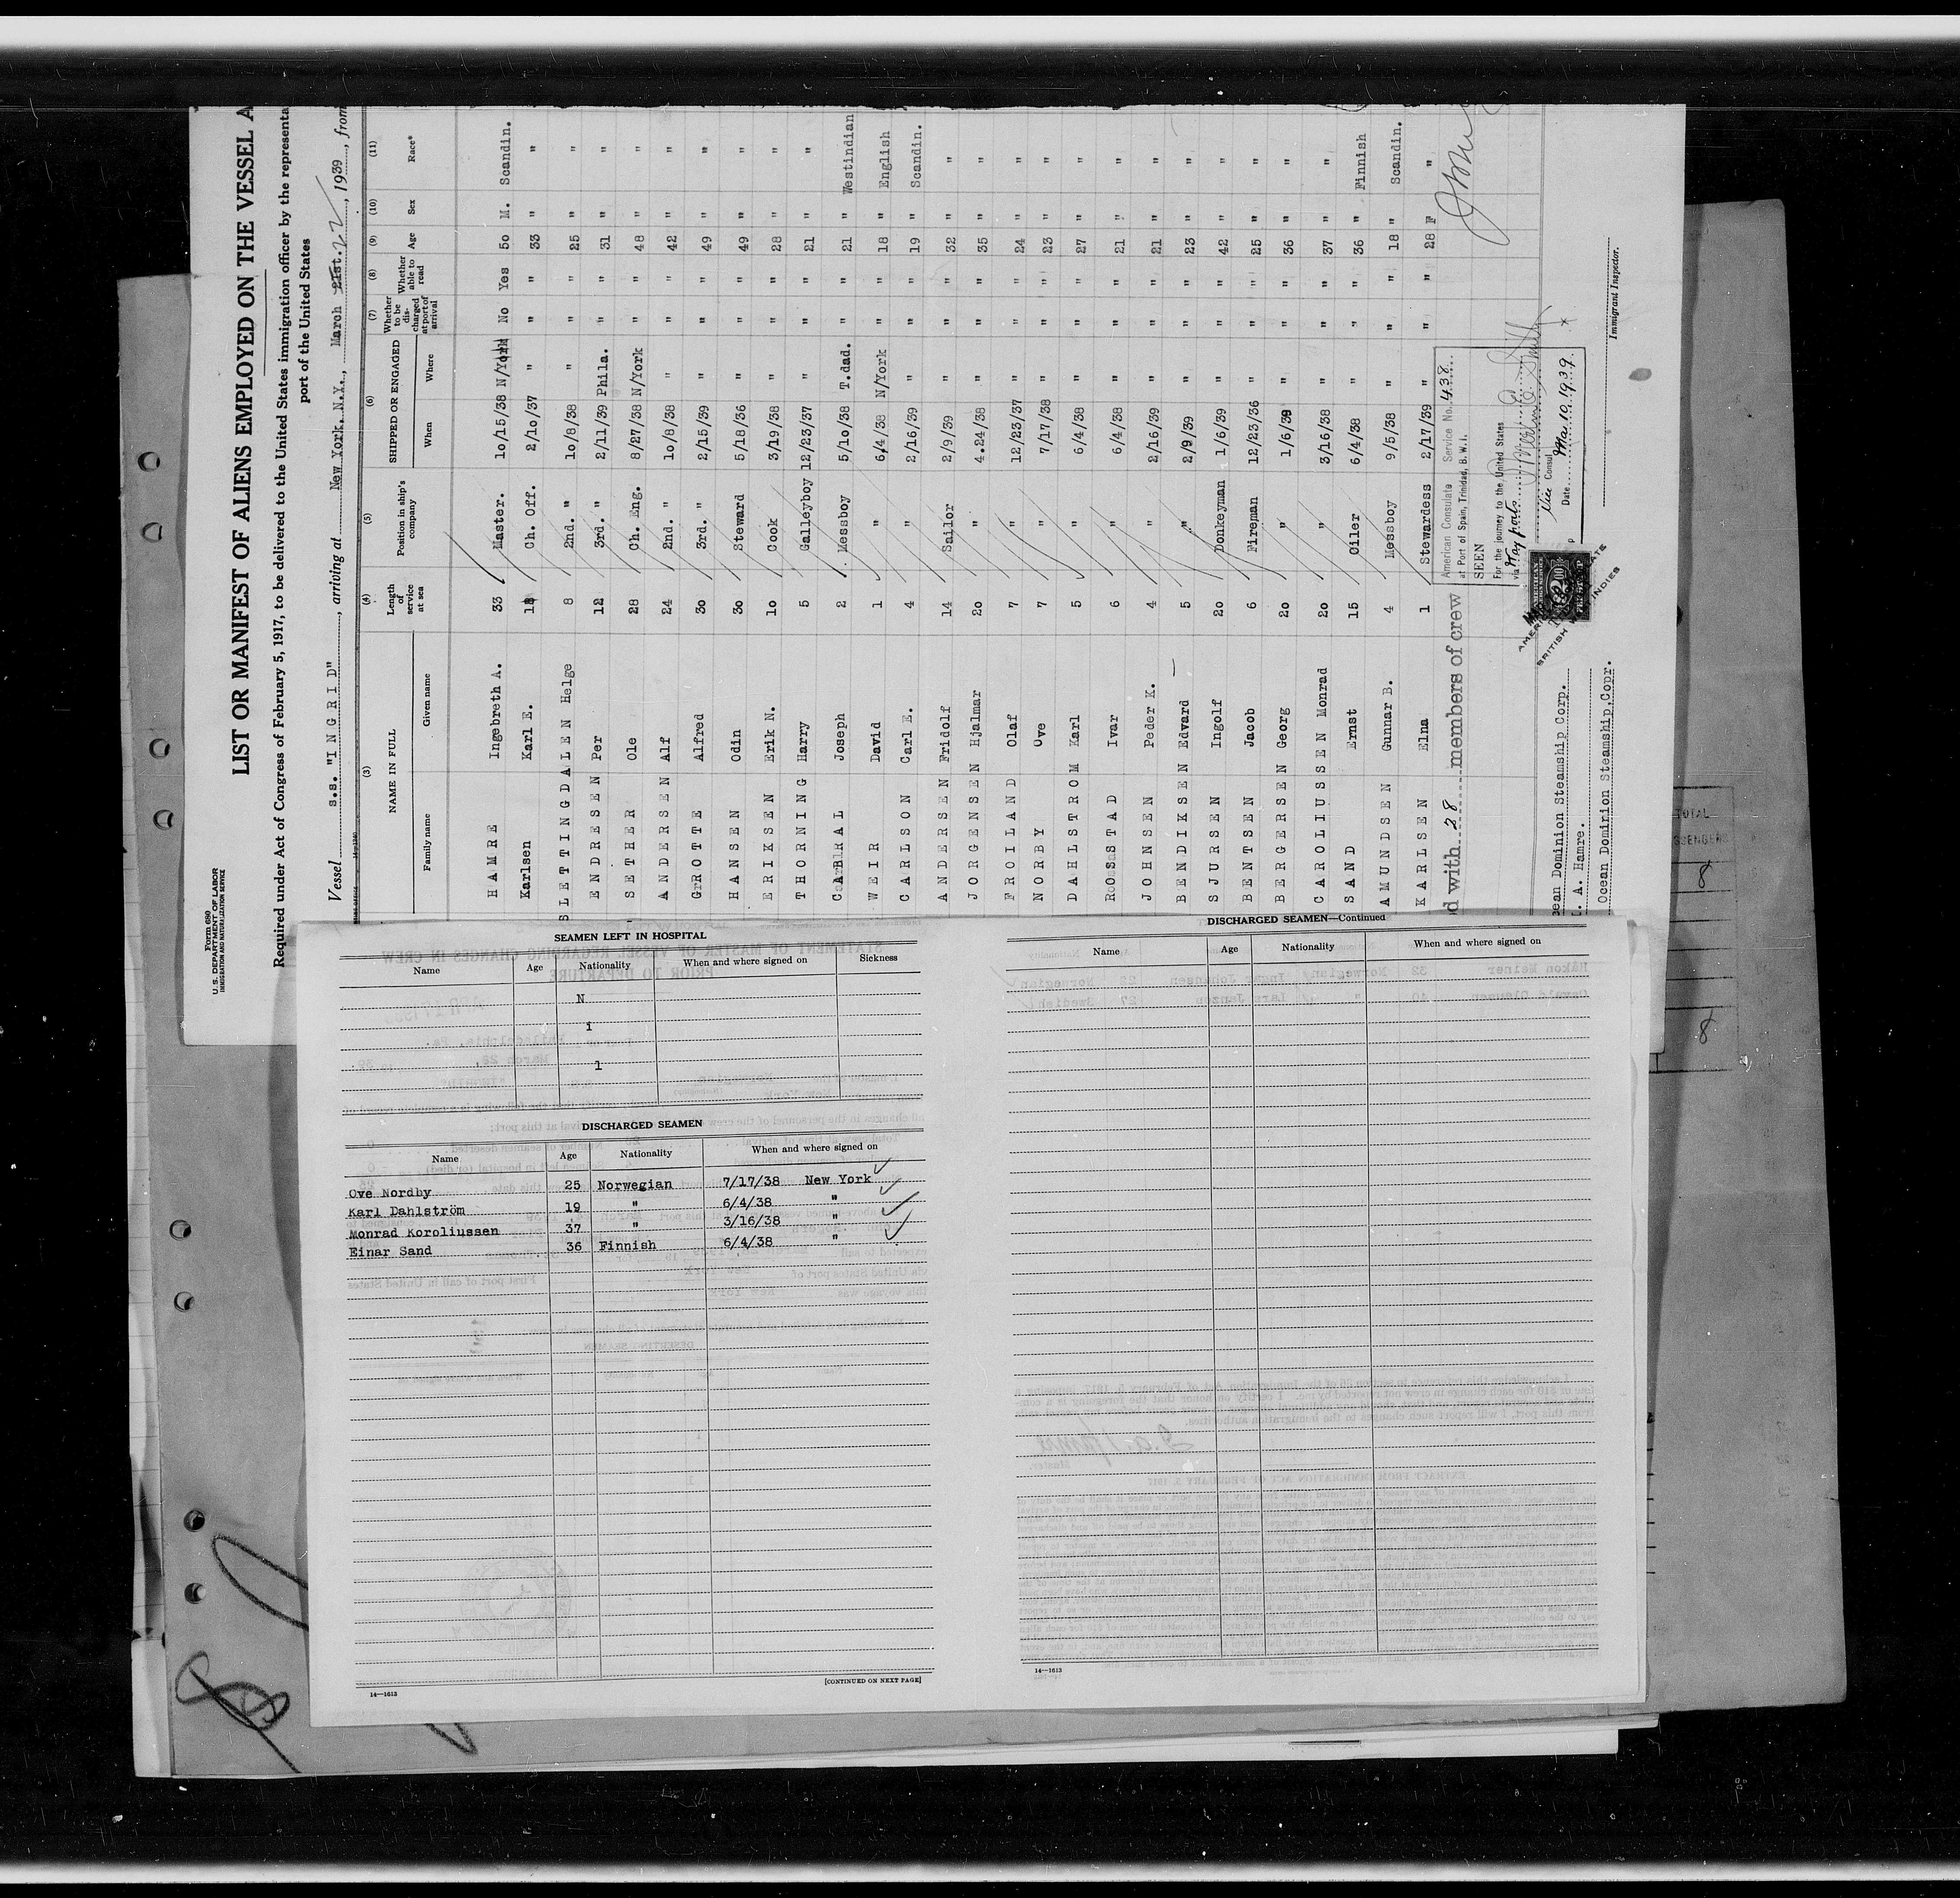 Form 680
U.S. DEPARTMENT OF LABOR
IMMIGRATION AND NATURALIZATION SERVICE
LIST OR MANIFEST OF ALIENS EMPLOYED ON THE VESSEL A
Required under Act of Congress of February 5, 1917, to be delivered to the United States immigration officer by the representa
port of the United States
Vessel s.s. "I N G R I D" , arriving at New York. N.Y. , March 21st. 22 , 1939 , from
(3) (4) (5) (6) (7) (8) (9) (10) (11)
NAME IN FULL Length of service at sea Position in ship's company SHIPPED OR ENGAGED Whether to be discharged at port of arrival Whether able to read Age Sex Race*
Family name Given name When Where
H A M R E Ingebreth A. 33 Master. 10/15/38 N/York No Yes 50 M. Scandin.
Karlsen Karl E. 18 Ch. Off. 2/10/37 " " " 33 " "
S L E T T I N G D A L E N Helge 8 2nd. " 10/8/38 " " " 25 " "
E N D R E S E N Per 12 3rd. " 2/11/39 Phila. " " 31 " "
S E T H E R Ole 28 Ch. Eng. 8/27/38 N/York " " 48 " "
A N D E R S E N Alf 24 2nd. " 10/8/38 " " " 42 " "
G R O T T E Alfred 30 3rd. " 2/15/39 " " " 49 " "
H A N S E N Odin 30 Steward 5/18/36 " " " 49 " "
E R I K S E N Erik N. 10 Cook 3/19/38 " " " 28 " "
T H O R N I N G Harry 5 Galleyboy 12/23/37 " " " 21 " "
C A B R A L Joseph 2 Messboy 5/10/38 T.dad. " " 21 " Westindian
W E I R David 1 " 6/4/38 N/York " " 18 " English
C A R L S O N Carl E. 4 " 2/16/39 " " " 19 " Scandin.
A N D E R S E N Fridolf 14 Sailor 2/9/39 " " " 32 " "
J O R G E N S E N Hjalmar 20 " 4.24/38 " " " 35 " "
F R O I L A N D Olaf 7 " 12/23/37 " " " 24 " "
N O R B Y Ove 7 " 7/17/38 " " " 23 " "
D A H L S T R O M Karl 5 " 6/4/38 " " " 27 " "
R O S S T A D Ivar 6 " 6/4/38 " " " 21 " "
J O H N S E N Peder K. 4 " 2/16/39 " " " 21 " "
B E N D I K S E N Edvard 5 " 2/9/39 " " " 23 " "
S J U R S E N Ingolf 20 Donkeyman 1/6/39 " " " 42 " "
B E N T S E N Jacob 6 Fireman 12/23/36 " " " 25 " "
B E R G E R S E N Georg 20 " 1/6/39 " " " 36 " "
C A R O L I U S S E N Monrad 20 " 3/16/38 " " " 37 " "
S A N D Ernst 15 Oiler 6/4/38 " " " 36 " Finnish
A M U N D S E N Gunnar B. 4 Messboy 9/5/38 " " " 18 " Scandin.
K A R L S E N Elna 1 Stewardess 2/17/39 " " " 28 F "
d with 28 members of crew
American Consulate Service No. 438
at Port of Spain, Trinidad, B. W. I.
SEEN
For the journey to the United States
via Way ports
Vice Consul
Date Mar 10. 1939
Immigrant Inspector.
cean Dominion Steamship Corp.
. A. Hamre.
Ocean Dominion Steamship Copr.
TOTAL
8
8
SEAMEN LEFT IN HOSPITAL
Name Age Nationality When and where signed on Sickness
N
i
l
DISCHARGED SEAMEN
Name Age Nationality When and where signed on
Ove Nordby 25 Norwegian 7/17/38 New York
Karl Dahlström 19 " 6/4/38 "
Monrad Koroliussen 37 " 3/16/38 "
Einar Sand 36 Finnish 6/4/38 "
[CONTINUED ON NEXT PAGE]
14—1613
DISCHARGED SEAMEN—Continued
Name Age Nationality When and where signed on
14—1613